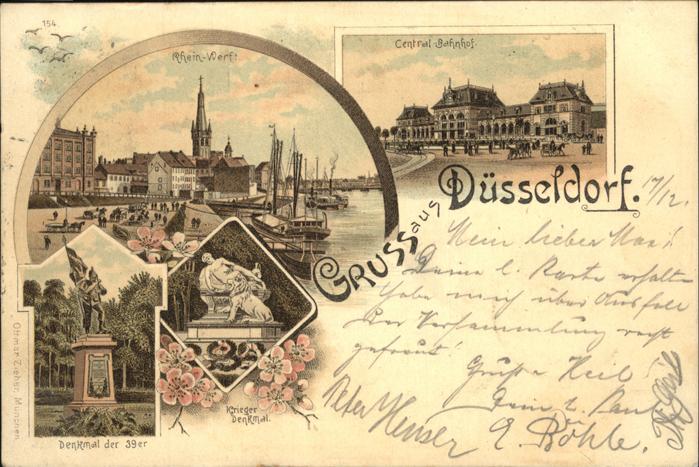 154
Rhein-Werft
Central-Bahnhof.
GRUSS aus Düsseldorf.
17/12.
Mein lieber Max!
Deine l. Karte erhalten
habe mich über Ausfall
der Versammlung recht
gefreut!
Gruß & Heil!
Dein l. Paul
Peter Heuser
E. Böhle.
Krieger
Denkmal.
Denkmal der 39er
Ottmar Zieher, München.